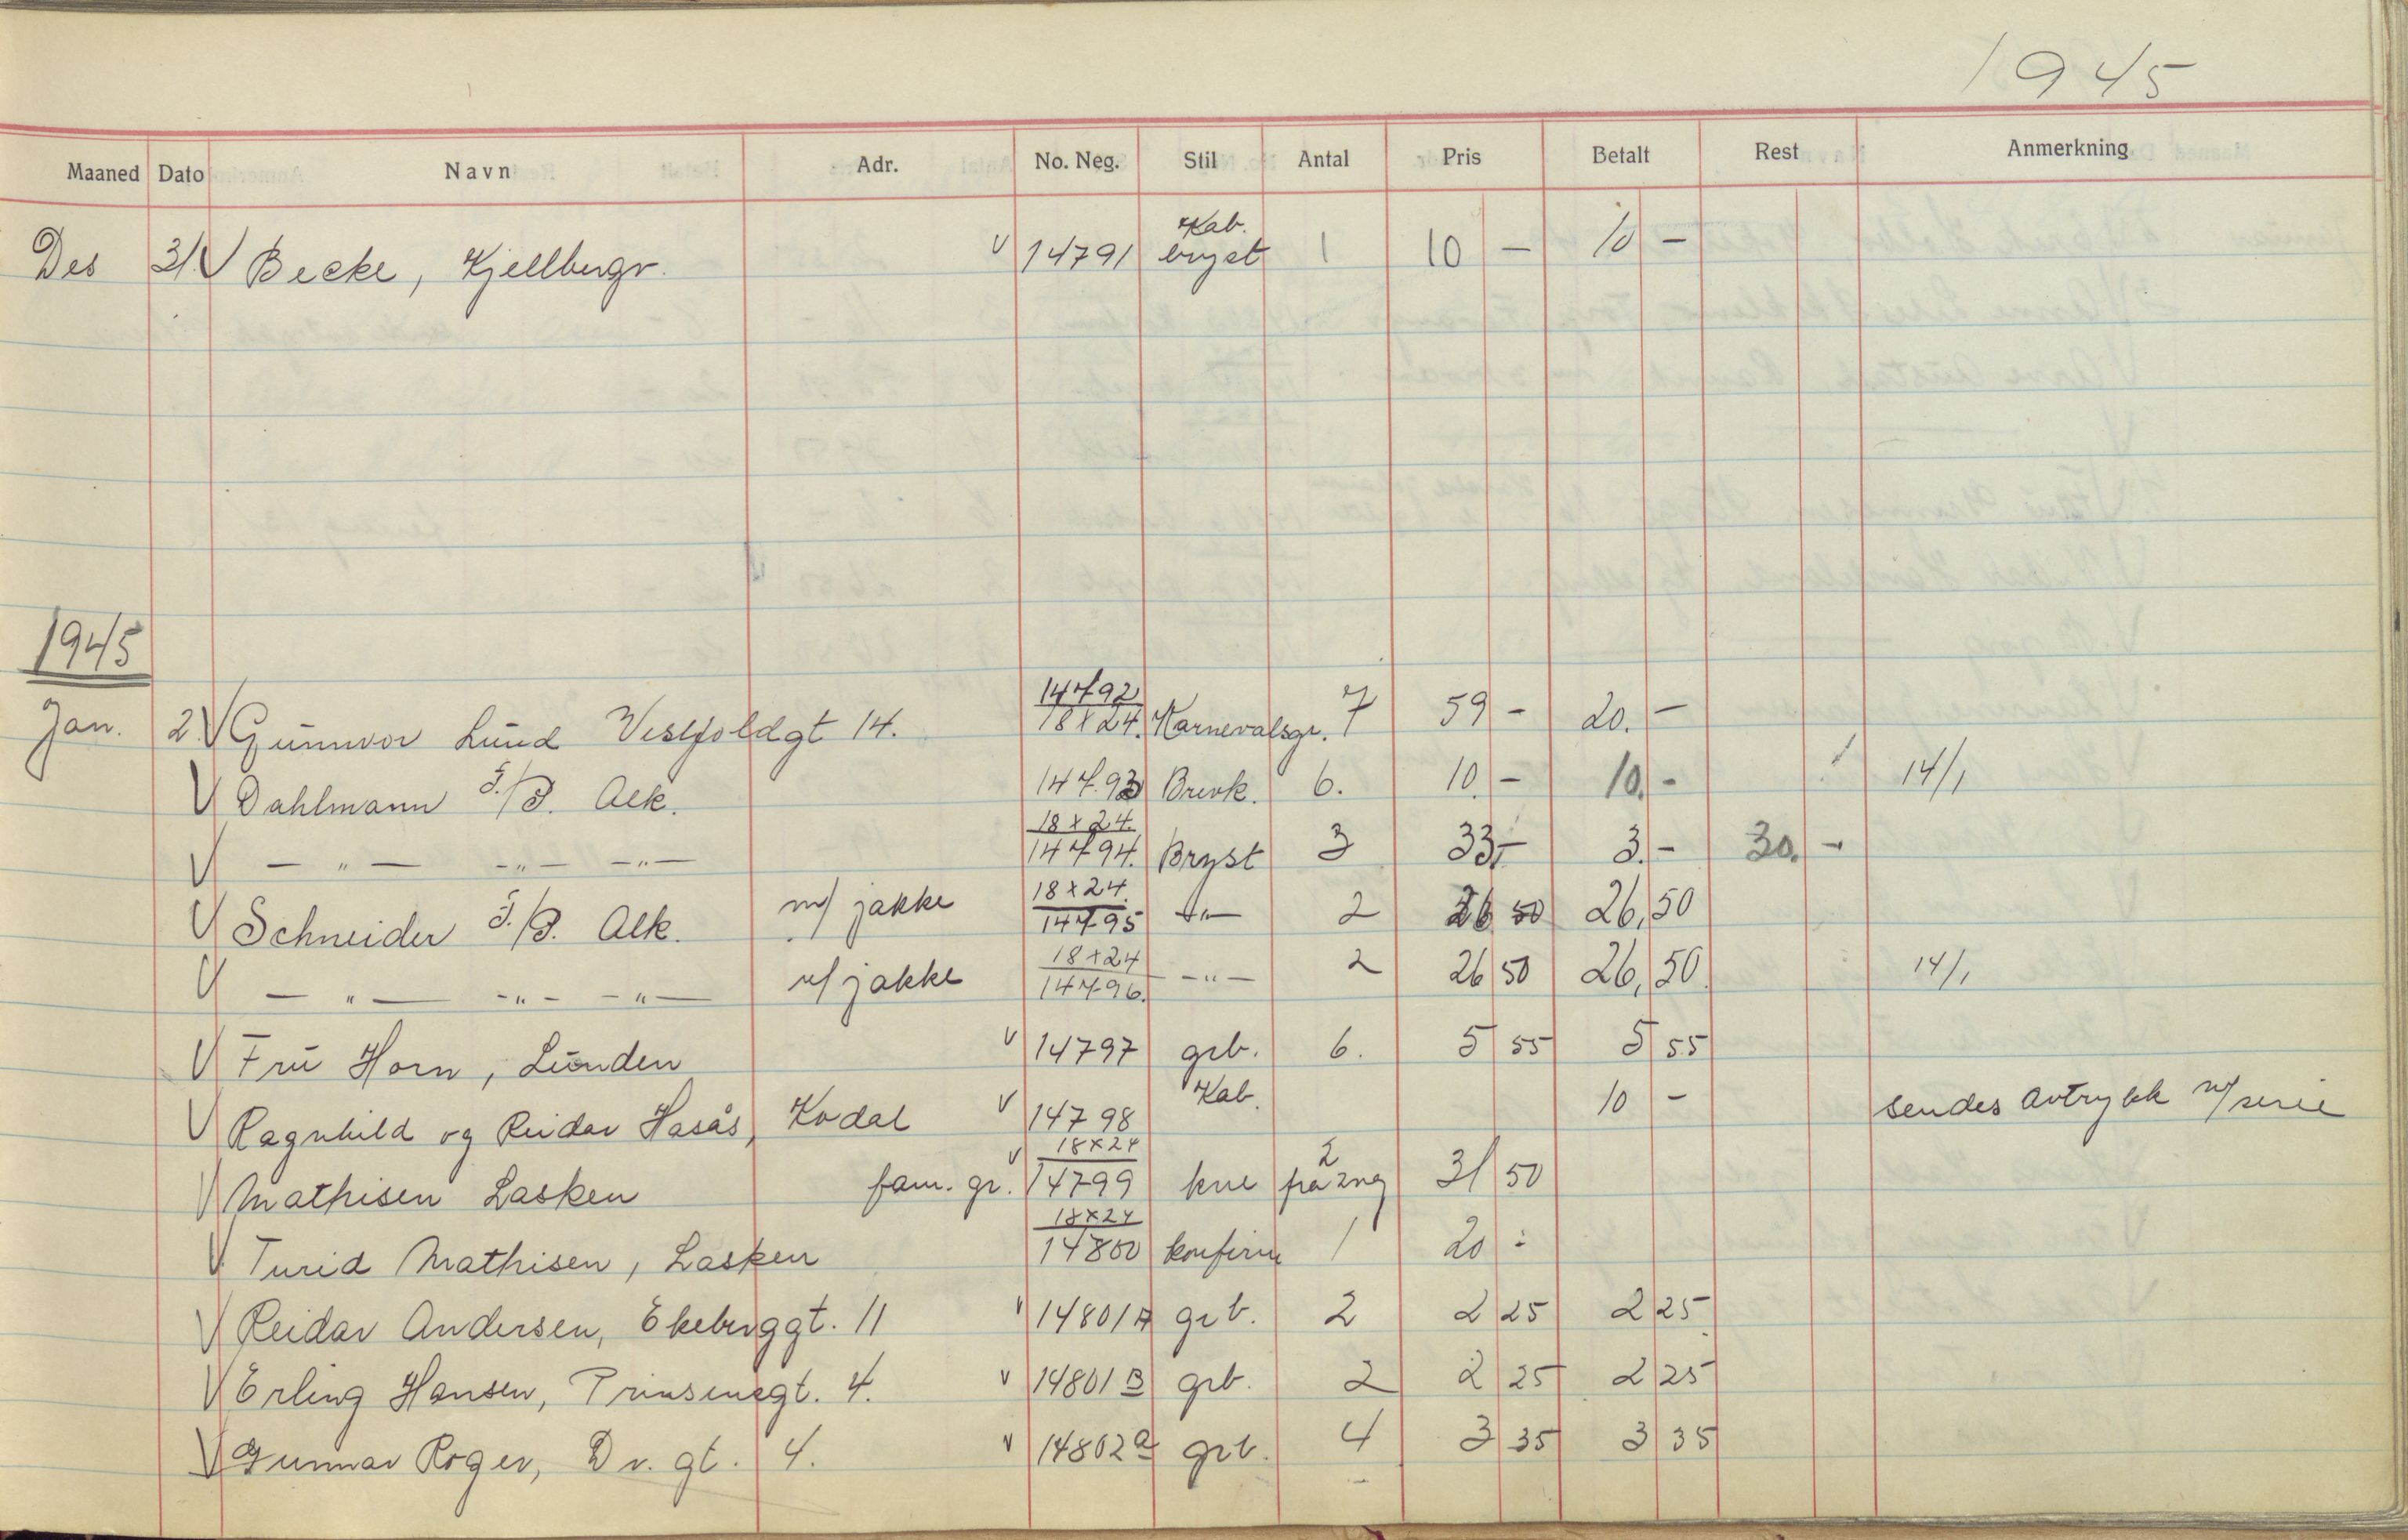 1945
Maaned Dato Navn Adr. No. Neg. Stil Antal Pris Betalt Rest Anmerkning
Des 31. V Becke, Kjellbergr. V 14791 Kab. bryst 1 10 - 10 -
1945
Jan. 2. V Gunnvor Lund Vestfoldgt 14. 14792 18x24. Karnevalsgr. 7 59 - 20. -
V Dahlmann Alk. 14793 Brevk. 6. 10. - 10. - 14/1
V - " - - " - - " - 18x24. 14794. Bryst 3 33,- 3. - 30. -
V Schneider Alk. m/ jakke 18x24. 14795 - " - 2 26 50 26,50
V - " - - " - - " - u/ jakke 18x24 14796. - " - 2 26 50 26,50. 14/1
V Fru Horn, Lunden V 14797 grb. 6. 5 55 5 55
V Ragnhild og Reidar Hasås, Kodal V 14798 Kab. 10 - sendes avtrykk m/serie
V Mathisen Lasken fam. gr. V 18x24 14799 kne 2 fra 2neg 31 50
V Turid Mathisen, Lasken 18x24 14800 konfirm 1 20 -
V Reidar Andersen, Ekeberggt. 11 V 14801A grb. 2 2 25 2 25
V Erling Hansen, Prinsensgt. 4. V 14801B grb. 2 2 25 2 25
V Gunnar Roger, Dr. gt. 4. V 14802a grb. 4 3 35 3 35